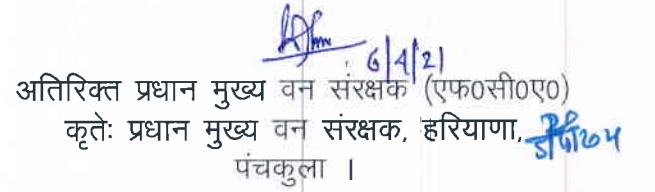 6/4/21
अतिरिक्त प्रधान मुख्य वन संरक्षक (एफ०सी०ए०)
कृतेः प्रधान मुख्य वन संरक्षक, हरियाणा,
पंचकुला ।